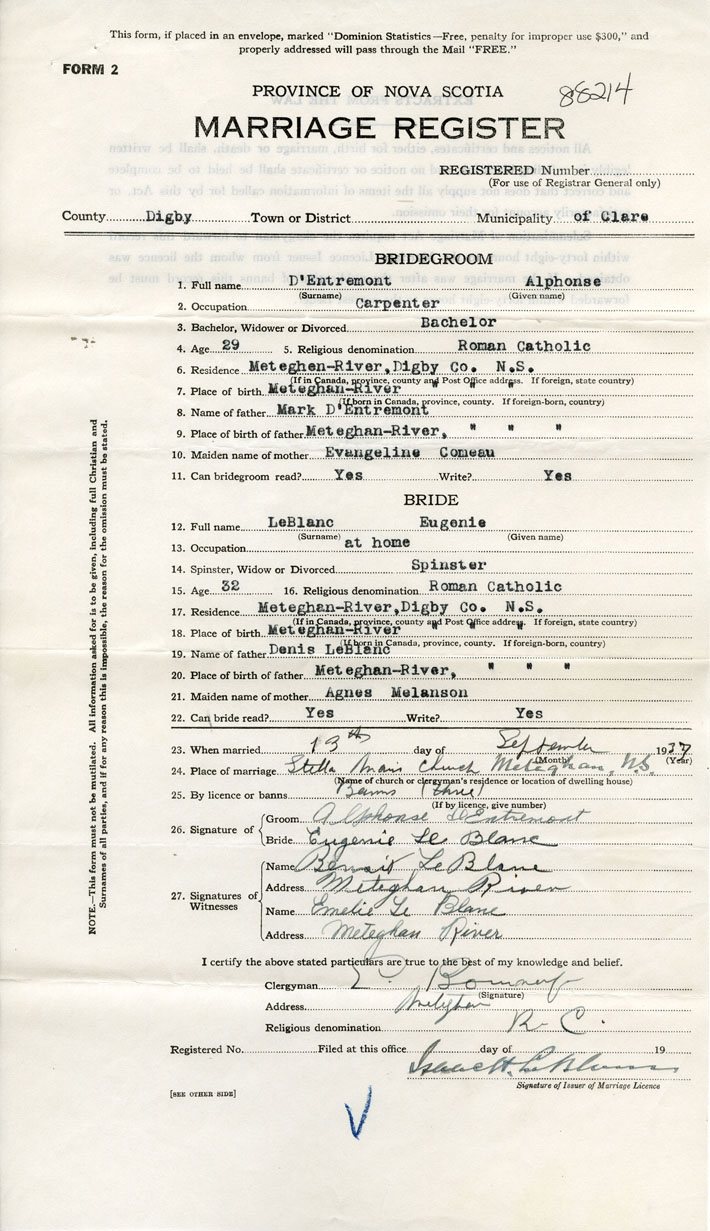 This form, if placed in an envelope, marked "Dominion Statistics—Free, penalty for improper use $300," and
properly addressed will pass through the Mail "FREE."
FORM 2
88214
PROVINCE OF NOVA SCOTIA
MARRIAGE REGISTER
REGISTERED Number
(For use of Registrar General only)
County Digby Town or District Municipality of Clare
BRIDEGROOM
1. Full name D'Entremont Alphonse
(Surname) (Given name)
2. Occupation Carpenter
3. Bachelor, Widower or Divorced Bachelor
4. Age 29 5. Religious denomination Roman Catholic
6. Residence Meteghen-River,Digby Co. N.S.
(If in Canada, province, county and Post Office address. If foreign, state country)
7. Place of birth Meteghan-River " " "
(If born in Canada, province, county. If foreign-born, country)
8. Name of father Mark D'Entremont
9. Place of birth of father Meteghan-River, " " "
10. Maiden name of mother Evangeline Comeau
11. Can bridegroom read? Yes Write? Yes
BRIDE
12. Full name LeBlanc Eugenie
(Surname) (Given name)
13. Occupation at home
14. Spinster, Widow or Divorced Spinster
15. Age 32 16. Religious denomination Roman Catholic
17. Residence Meteghan-River,Digby Co. N.S.
(If in Canada, province, county and Post Office address. If foreign, state country)
18. Place of birth Meteghan-River " " "
(If born in Canada, province, county. If foreign-born, country)
19. Name of father Denis LeBlanc
20. Place of birth of father Meteghan-River, " " "
21. Maiden name of mother Agnes Melanson
22. Can bride read? Yes Write? Yes
23. When married 13th day of September 1937
(Month) (Year)
24. Place of marriage Stella Maris Church Meteghan, N.S.
(Name of church or clergyman's residence or location of dwelling house)
25. By licence or banns Banns (three)
(If by licence, give number)
26. Signature of
Groom Alphonse D'Entremont
Bride Eugenie Le Blanc
27. Signatures of Witnesses
Name Benoit LeBlanc
Address Meteghan River
Name Emelie Le Blanc
Address Meteghan River
I certify the above stated particulars are true to the best of my knowledge and belief.
Clergyman
(Signature)
Address Meteghan
Religious denomination R. C.
Registered No. Filed at this office day of 19
Isaac H. LeBlanc
Signature of Issuer of Marriage Licence
[SEE OTHER SIDE]
NOTE.—This form must not be mutilated. All information asked for is to be given, including full Christian and
Surnames of all parties, and if for any reason this is impossible, the reason for the omission must be stated.